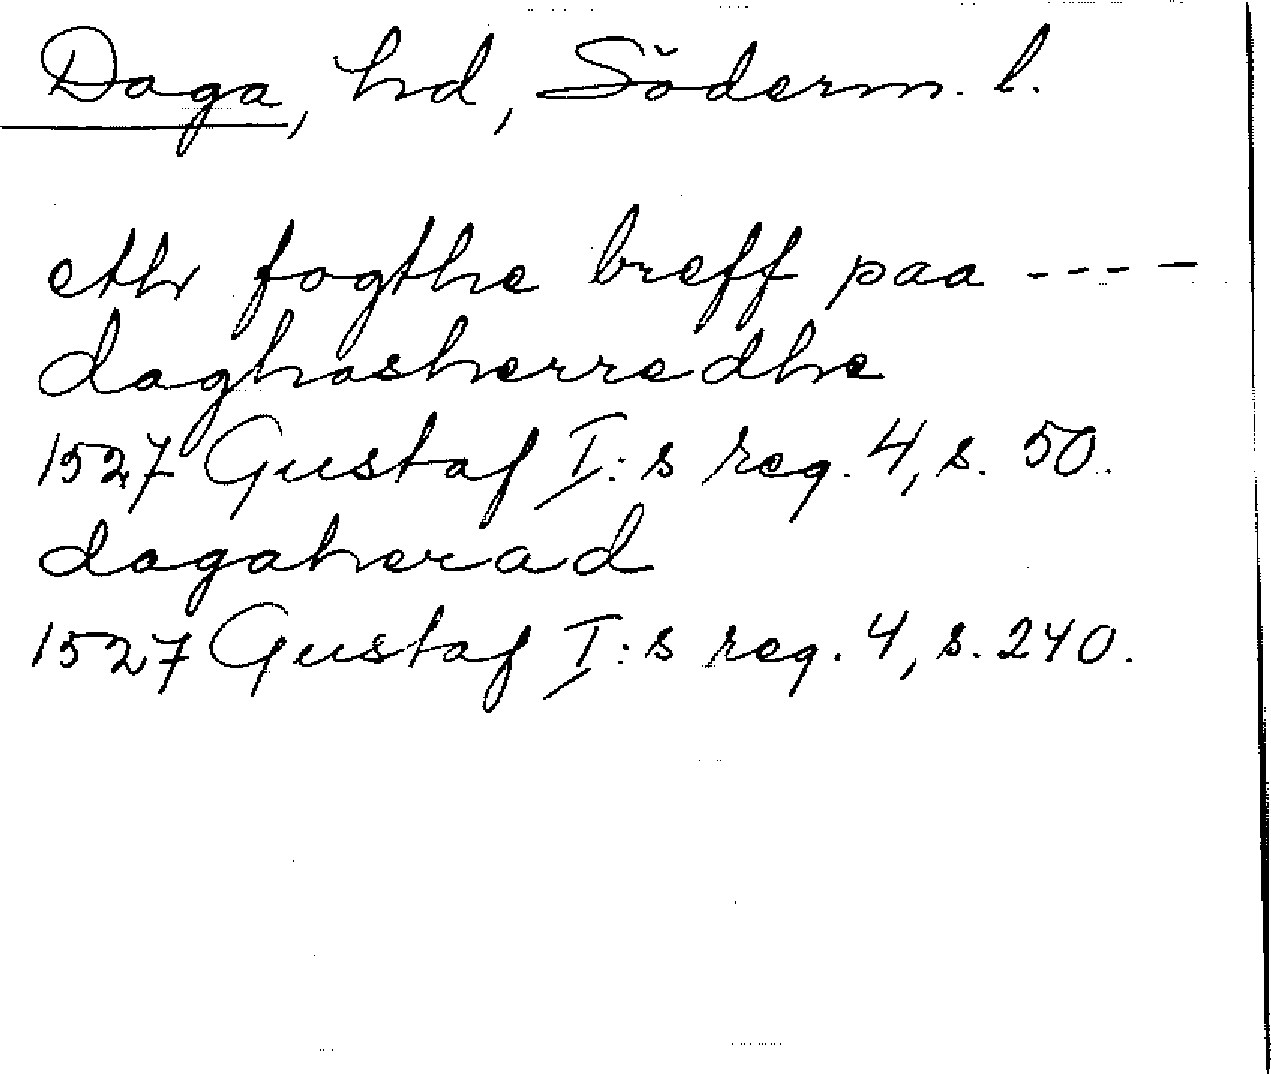 Daga, hd, Söderm. l.
eth fogthe breff paa ----
daghasherredhe
1527 Gustaf I:s reg. 4, s. 50.
dagaherad
1527 Gustaf I:s reg. 4, s. 240.